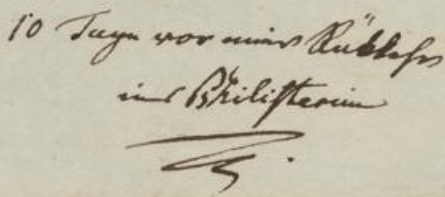 10 Tage vor meiner Rükkehr
ins Philisterium